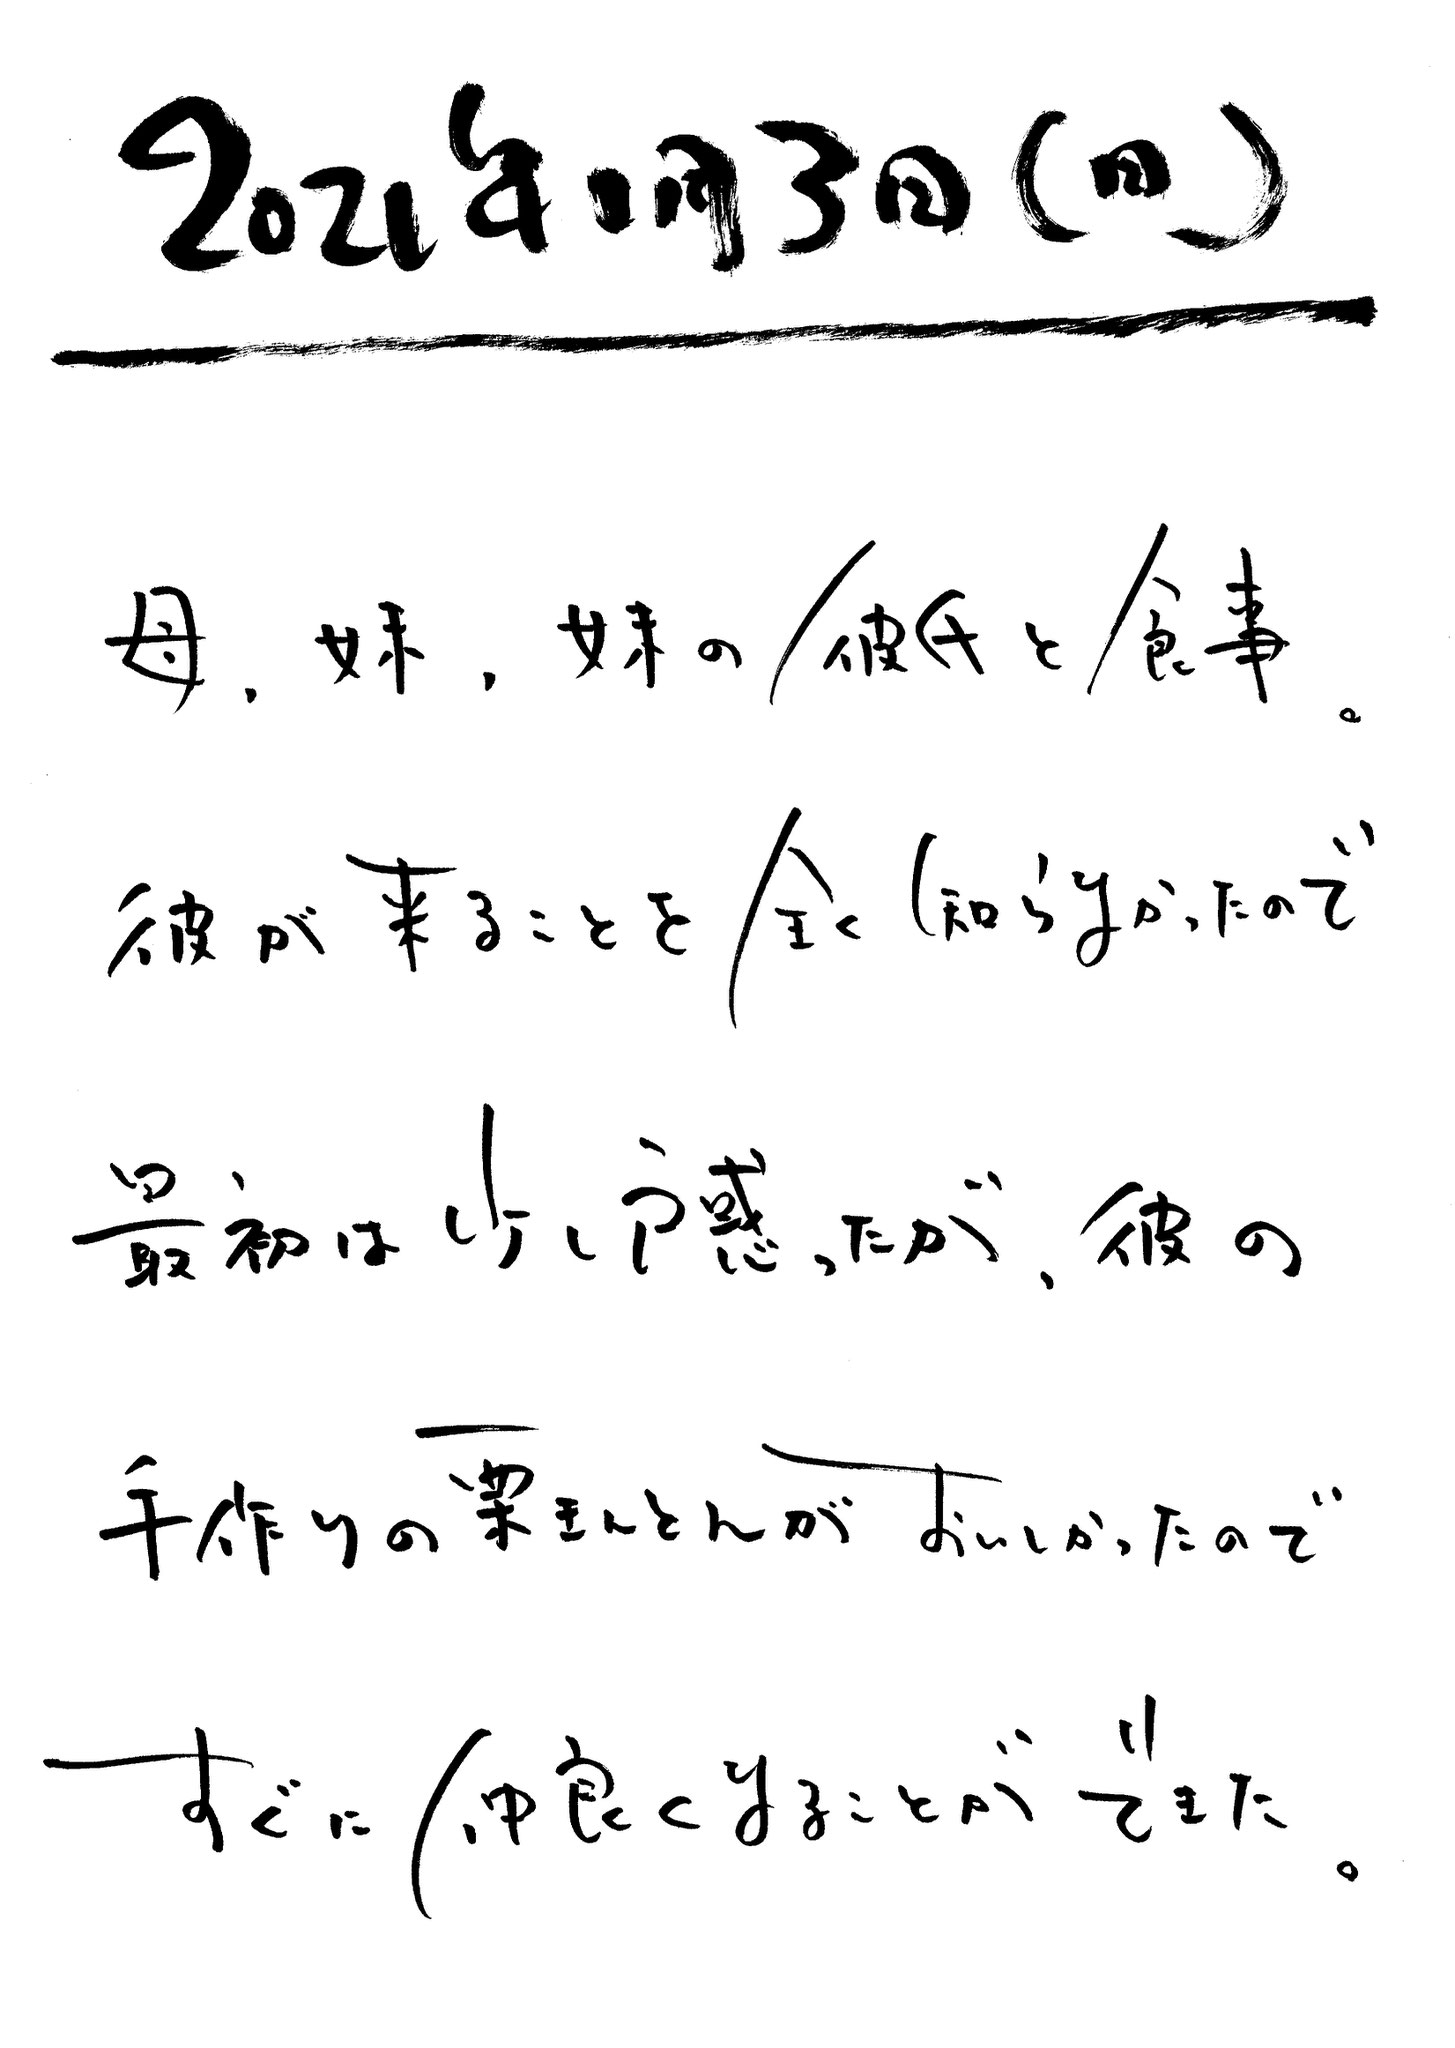 2021年1月3日(日)
母、妹、妹の彼氏と食事。
彼が来ることを全く知らなかったので
最初は少し戸惑ったが、彼の
手作りの栗きんとんがおいしかったので
すぐに仲良くなることができた。